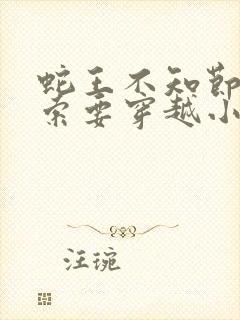 蛇王不知节
索要穿越小
汪琬